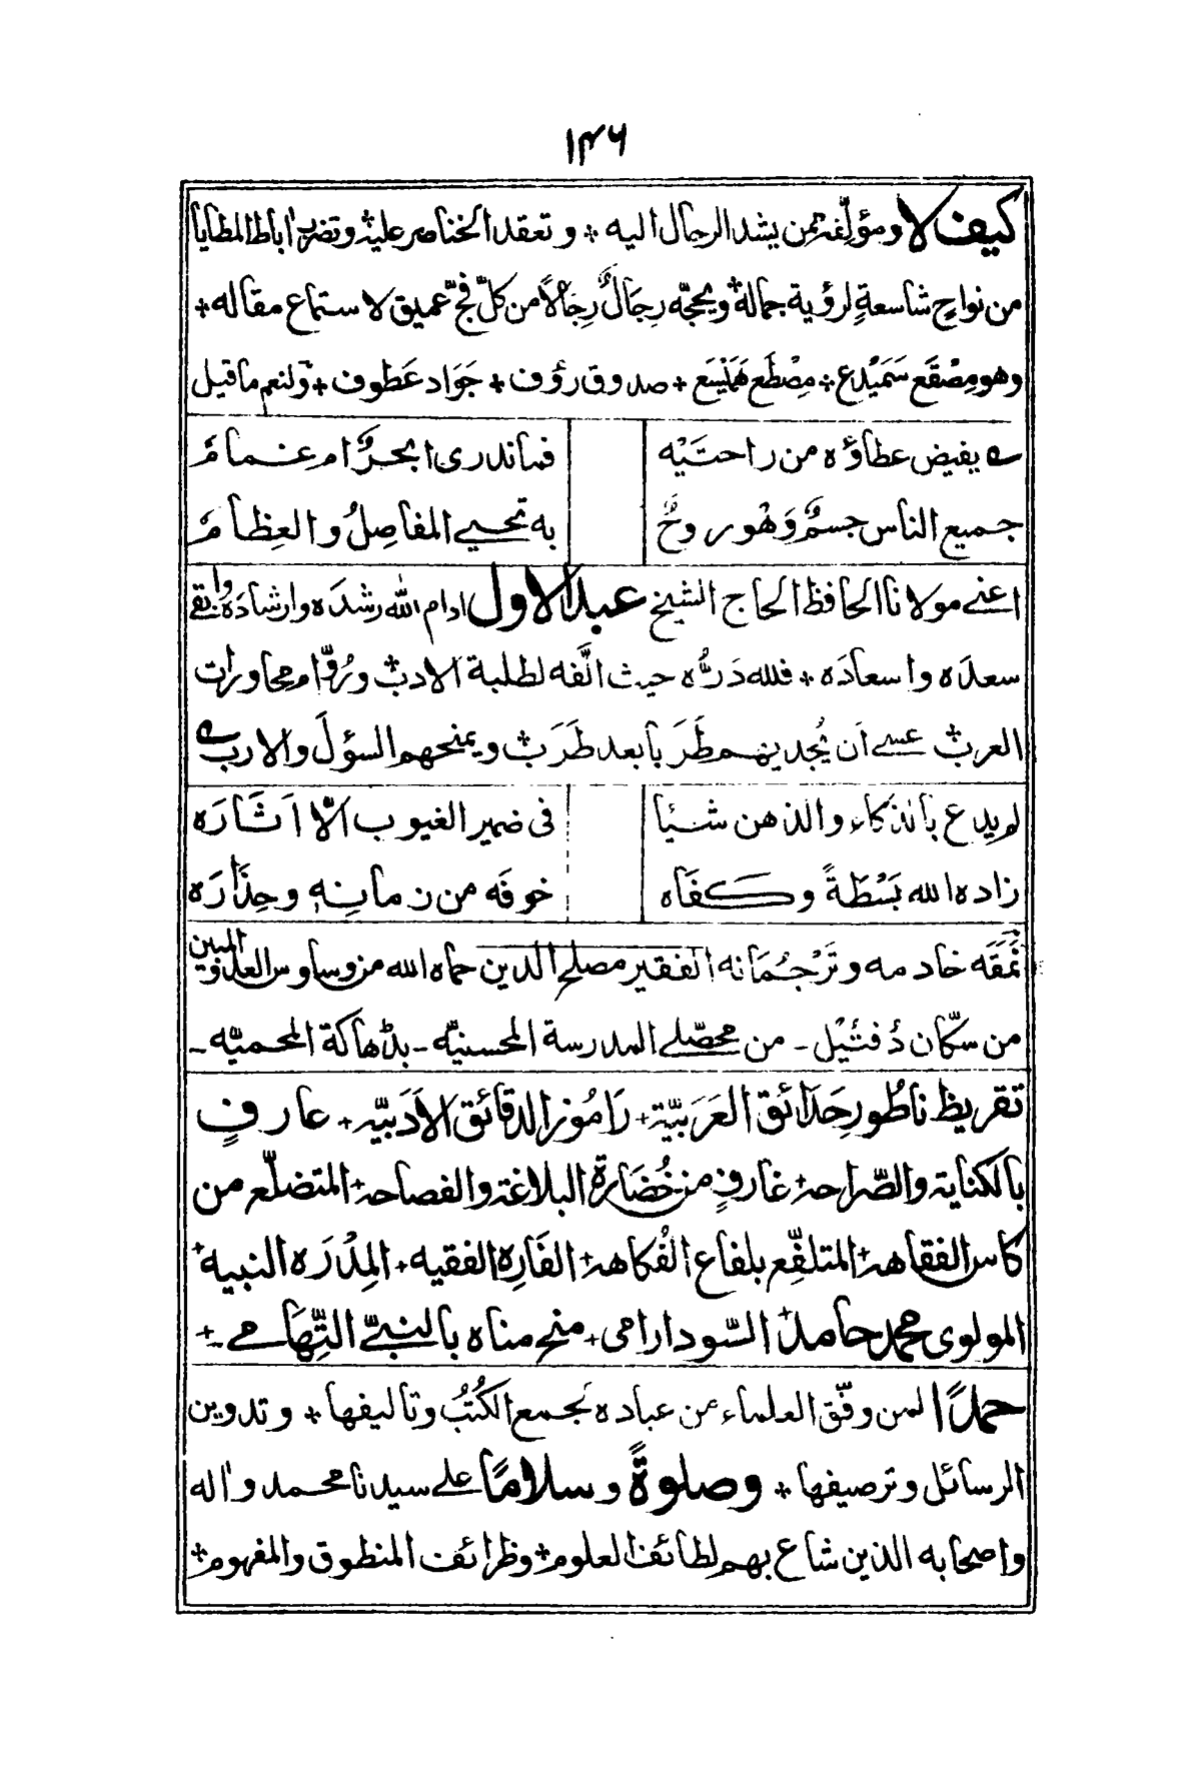 ۱۴۶
كيف لا ومؤلِّفه ممن يشد الرحال اليه ٭ وتعقد الخناصر عليه٭ وتضرب اباط المطايا
من نواحٍ شاسعةٍ لرؤية جماله٭ ويحجّه رِجَالٌ رِجَالًا من كلّ فجّ عميق لاستماع مقاله٭
وهو مِصْقَع سَمَيْدع٭ مِصْطَع هَمَيْسَع ٭ صدوق رؤف ٭ جَوَاد عَطوف ٭ ولنعم ما قيل
يفيض عطاؤه من راحتَيْه فما ندرى ابحرٌ ام غمامٌ
جميع الناس جسمٌ وَهْو روحٌ به تحيى المفاصِلُ والعِظامُ
اعنى مولانا الحافظ الحاج الشيخ عبد الاول ادام الله رشدَه وارشادَه وابقى
سعدَه واسعادَه ٭ فلله دَرُّه حيث الَّفه لطلبة الادب٭ ورُوّام محاورات
العرب٭ عسى اَن يُجديهم طَرَبا بعد طَرَب٭ ويمنحهم السؤلَ والارب
لم يدع بالذكاء والذهن شيئا فى ضمير الغيوب الّا اَثَارَه
زاده الله بَسْطَةً وكفَاه خوفَه من زمانِه وحِذَارَه
نَمَّقَه خادمه وتَرْجُمَانه الفقير مصلح الدين حماه الله من وساوس العدوّ المبين
من سكّان دُفتيْل ـ من محصّلى المدرسة المحسنيّه ـ بدٔهاكة المحميّه ـ
تقريظ ناطُور حَدَائق العَرَبيّة٭ رَامُوز الدقائق الاَدَبيّه ٭ عارفٍ
بالكناية والصّراحه٭ غارفٍ من خُضَارة البلاغة والفصاحه٭ المتضلّع من
كاس الفقاهه٭ المتلفّع بلفاع الفُكاهه٭ الفَارِه الفقيه٭ المِدْرَه النبيه٭
المولوى محمد حامد السّودارامى ٭ منح مناه بالنبىّ التِّهَامى ـ٭
حمدًا لمن وفّق العلماء من عباده لجمع الكُتُب وتاليفها ٭ وتدوين
الرسائل وترصيفها ٭ وصلوةً وسلامًا على سيدنا محمد واله
واصحابه الذين شاع بهم لطائف العلوم٭ وظرائف المنطوق والمفهوم٭